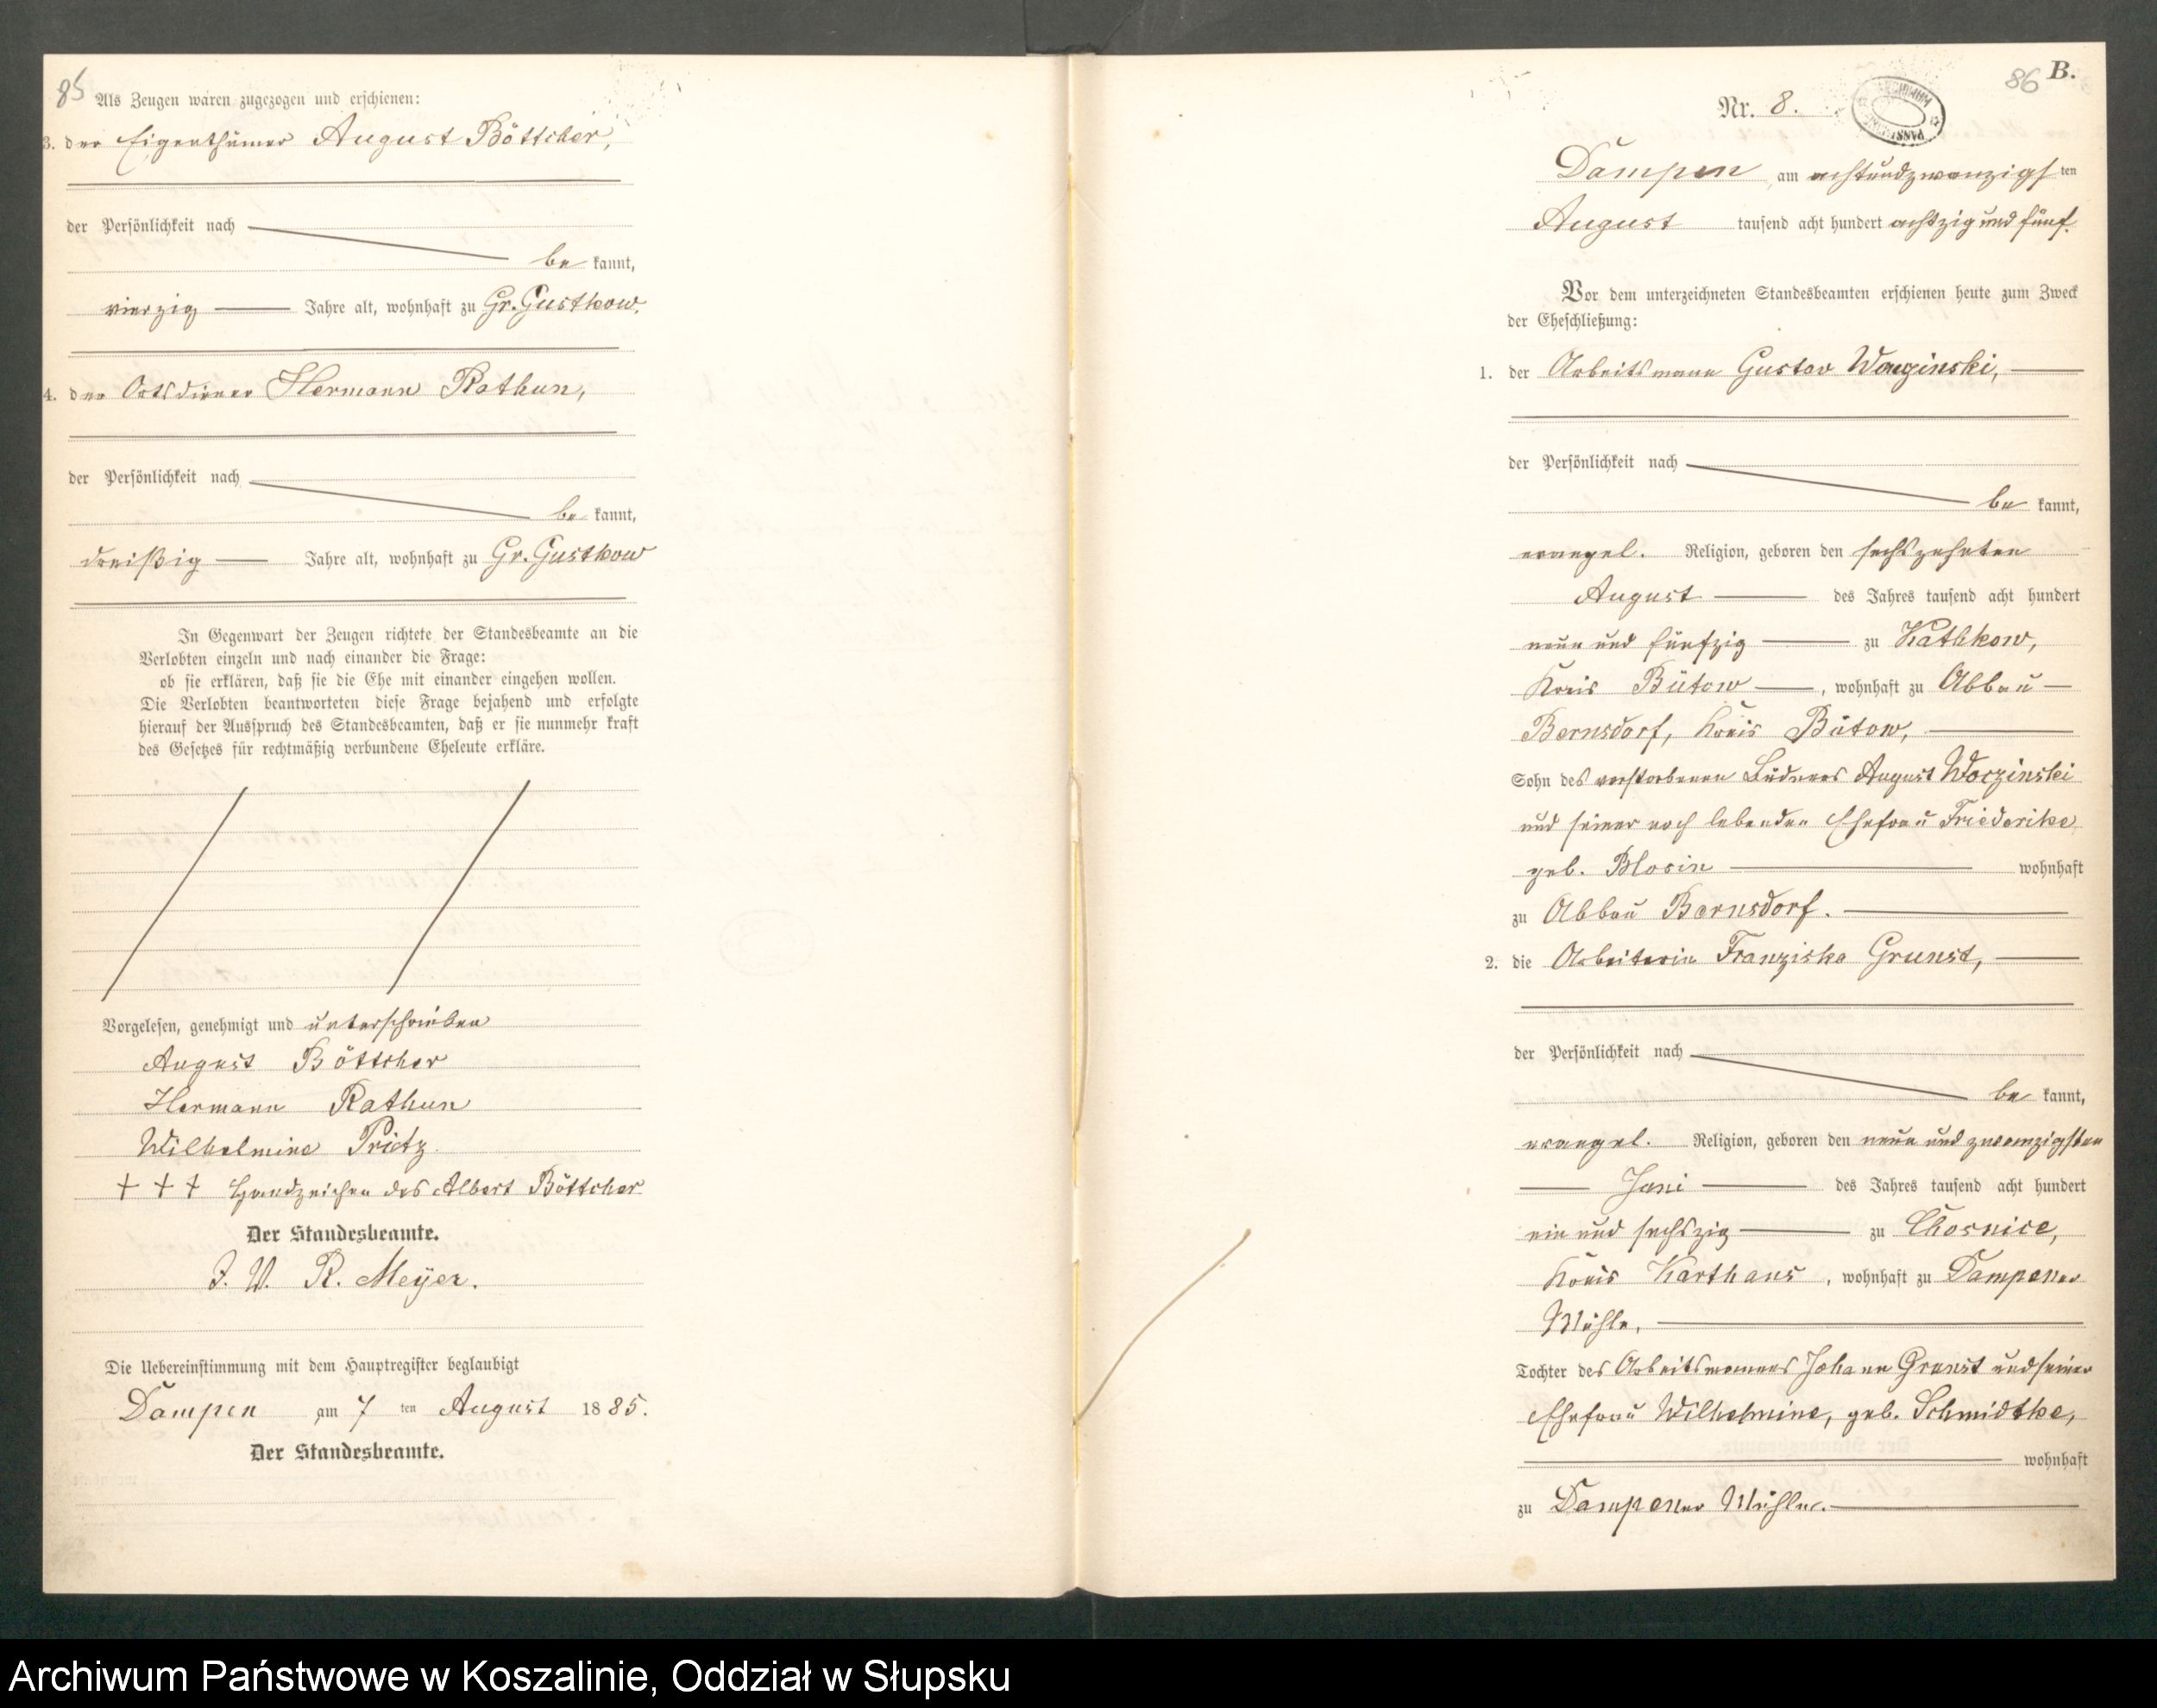 85
Als Zeugen waren zugezogen und erschienen:
3. der Eigenthümer August Böttcher,
der Persönlichkeit nach
be kannt,
vierzig Jahre alt, wohnhaft zu Gr. Gustkow.
4. der Ortsdiener Hermann Rathun,
der Persönlichkeit nach
be kannt,
dreißig Jahre alt, wohnhaft zu Gr. Gustkow
In Gegenwart der Zeugen richtete der Standesbeamte an die
Verlobten einzeln und nach einander die Frage:
ob sie erklären, daß sie die Ehe mit einander eingehen wollen.
Die Verlobten beantworteten diese Frage bejahend und erfolgte
hierauf der Ausspruch des Standesbeamten, daß er sie nunmehr kraft
des Gesetzes für rechtmäßig verbundene Eheleute erkläre.
Vorgelesen, genehmigt und unterschrieben
August Böttcher
Hermann Rathun
Wilhelmine Prietz
+ + + Handzeichen des Albert Böttcher
Der Standesbeamte.
J. V. R. Meyer.
Die Uebereinstimmung mit dem Hauptregister beglaubigt
Dampen am 7 ten August 1885.
Der Standesbeamte.
86 B.
Nr. 8.
Dampen am achtundzwanzigs ten
August tausend acht hundert achtzig und fünf.
Vor dem unterzeichneten Standesbeamten erschienen heute zum Zweck
der Eheschließung:
1. der Arbeitsmann Gustav
der Persönlichkeit nach
be kannt,
evangel. Religion, geboren den sechszehnten
August des Jahres tausend acht hundert
neun und fünfzig zu Kathkow,
Kreis Bütow, wohnhaft zu Abbau
Bernsdorf, Kreis Bütow,
Sohn des verstorbenen Büdners August Worzinski
und seiner noch lebenden Ehefrau Friederike
geb. Blosin wohnhaft
zu Abbau Bernsdorf.
2. die Arbeiterin Franziska Grunst,
der Persönlichkeit nach
be kannt,
evangel. Religion, geboren den neun und zwanzigsten
Juni des Jahres tausend acht hundert
ein und sechszig zu Chosnice,
Kreis Karthaus, wohnhaft zu Dampener
Mühle,
Tochter des Arbeitsmannes Johann Grunst und seiner
Ehefrau Wilhelmine, geb. Schmidtke,
wohnhaft
zu Dampener Mühle.
Archiwum Państwowe w Koszalinie, Oddział w Słupsku